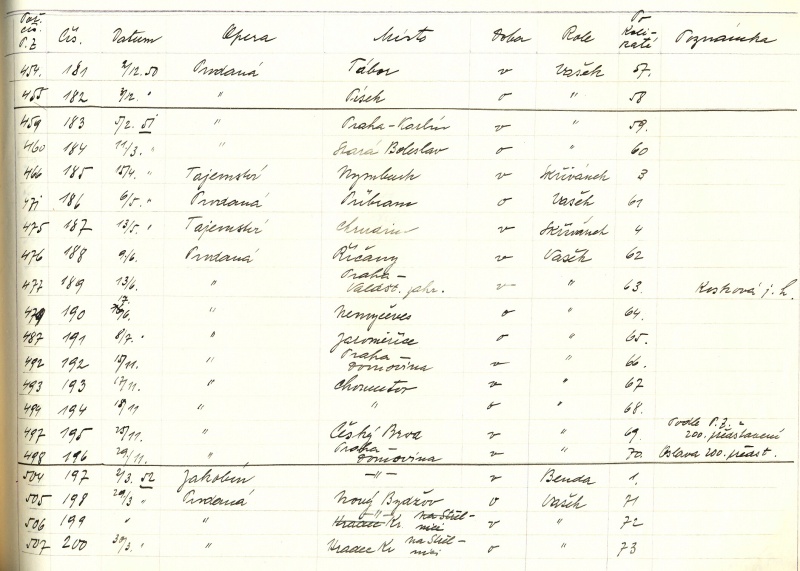 Poř. čís. P.Z Čís. Datum Opera Místo Doba Role Po kolikáté Poznámka
454. 181 2/12.50 Prodaná Tábor v Vašek 57.
455 182 3/12. " " Písek o " 58
459 183 5/2. 51 " Praha-Karlín v " 59.
460 184 11/3. " " Stará Boleslav o " 60
466 185 15/4. " Tajemství Nymburk v Skřivánek 3
471 186 6/5. " Prodaná Příbram o Vašek 61
475 187 13/5. " Tajemství Chrudim v Skřivánek 4
476 188 9/6. Prodaná Říčany v Vašek 62
477 189 13/6. " Praha – Valdšt. zahr. v " 63. j. h.
479 190 17/6. " o " 64.
487 191 8/7. " " Jaroměřice o " 65.
492 192 15/11. " Praha – Domovina v " 66.
493 193 17/11. " Chomutov v " 67
494 194 18/11 " " o " 68.
497 195 25/11. " Český Brod v " 69. Podle P.Z. = 200. představení
498 196 29/11. " Praha Domovina v " 70. Oslava 200. předst.
504 197 2/3. 52 Jakobín –"– v Benda 1.
505 198 29/3 " Prodaná Nový Bydžov o Vašek 71
506 199 " " –"– Hradec Kr. na Střelnici v " 72
507 200 30/3. " " Hradec Kr na Střelnici o " 73